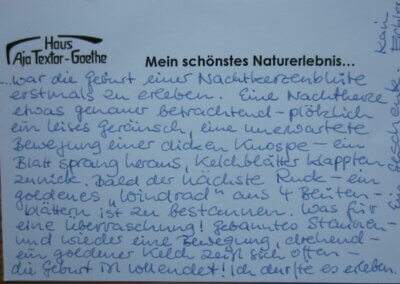 Haus
Aja Textor-Goethe
Mein schönstes Naturerlebnis...
...war die Geburt einer Nachtkerzenblüte
erstmals zu erleben. Eine Nachtkerze
etwas genauer betrachtend - plötzlich
ein leises Geräusch, eine unerwartete
Bewegung einer dicken Knospe - ein
Blatt sprang heraus, Kelchblätter klappten
zurück. Bald der nächste Ruck - ein
goldenes "Windrad" aus 4 Blüten-
blättern ist zu bestaunen. Was für
eine Überraschung! Gebanntes Staunen -
und wieder eine Bewegung, drehend -
ein goldener Kelch zeigt sich offen -
die Geburt ist vollendet! Ich durfte es erleben.
Ein Geschenk!